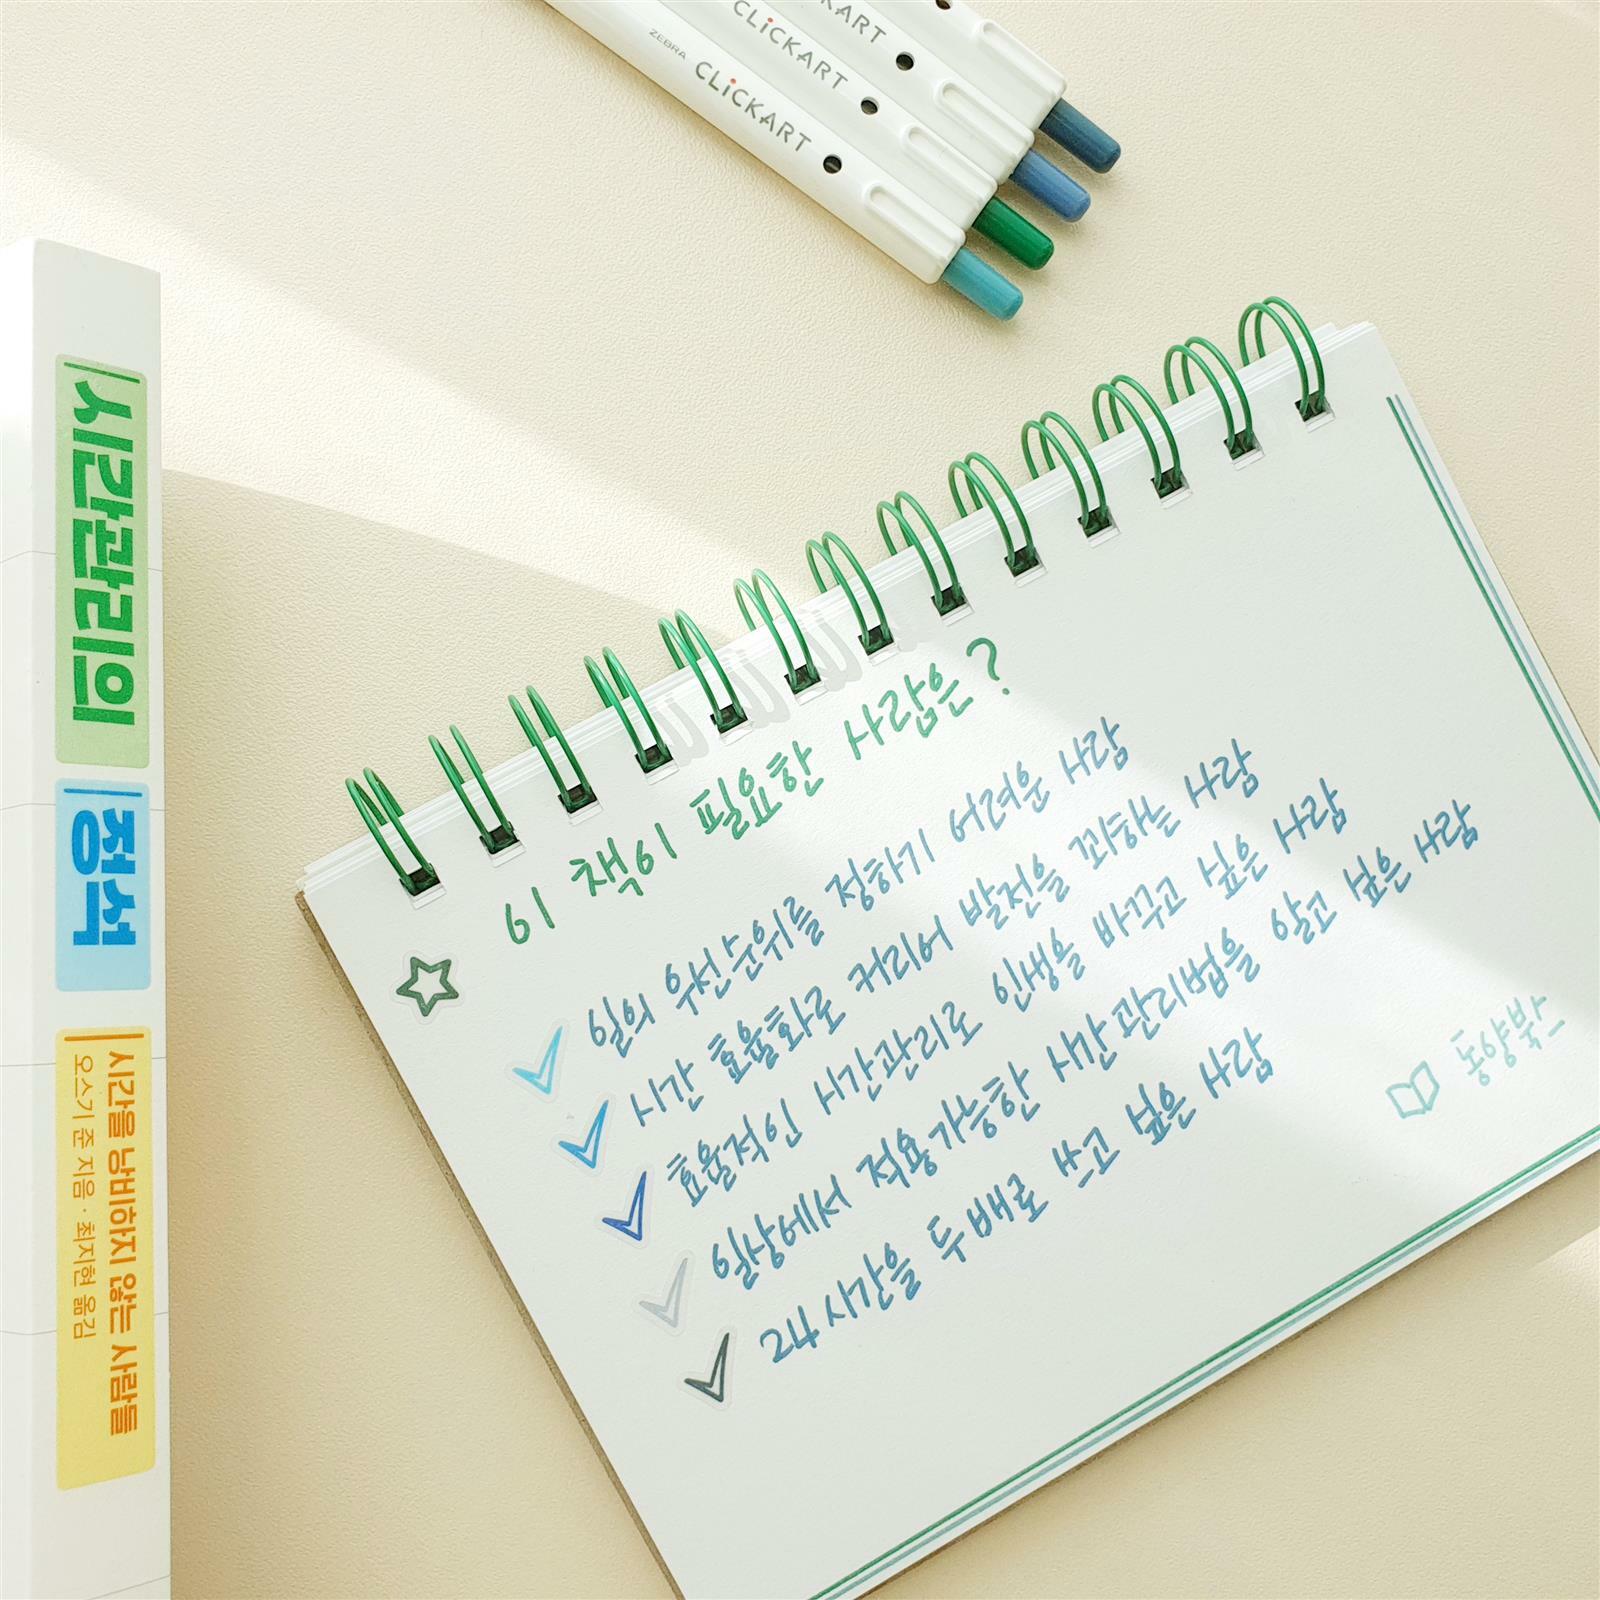 CLiCKART
CLiCKART
ZEBRA CLiCKART
시간관리의
정석
시간을 낭비하지 않는 사람들
오스기 준 지음 · 최지현 옮김
이 책이 필요한 사람은?
일의 우선순위를 정하기 어려운 사람
시간 효율화로 커리어 발전을 꾀하는 사람
효율적인 시간관리로 인생을 바꾸고 싶은 사람
일상에서 적용가능한 시간관리법을 알고 싶은 사람
24시간을 두배로 쓰고 싶은 사람
동양북스